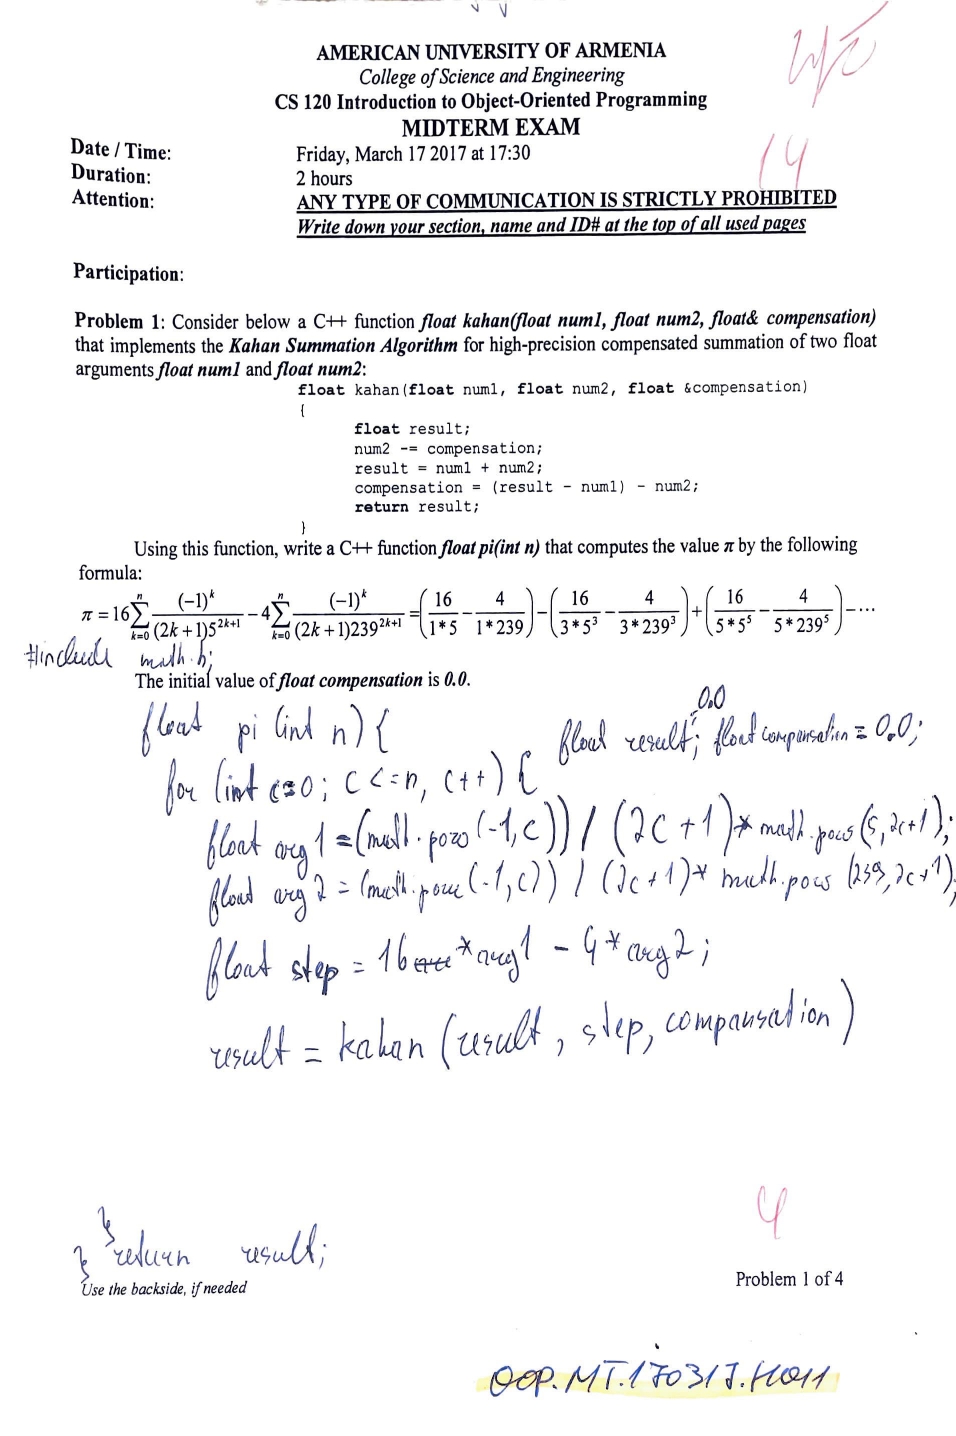 AMERICAN UNIVERSITY OF ARMENIA
College of Science and Engineering
CS 120 Introduction to Object-Oriented Programming
MIDTERM EXAM
14
Date / Time: Friday, March 17 2017 at 17:30
Duration: 2 hours
Attention: ANY TYPE OF COMMUNICATION IS STRICTLY PROHIBITED
Write down your section, name and ID# at the top of all used pages
Participation:
Problem 1: Consider below a C++ function float kahan(float num1, float num2, float& compensation)
that implements the Kahan Summation Algorithm for high-precision compensated summation of two float
arguments float num1 and float num2:
float kahan(float num1, float num2, float &compensation)
{
float result;
num2 -= compensation;
result = num1 + num2;
compensation = (result - num1) - num2;
return result;
}
Using this function, write a C++ function float pi(int n) that computes the value π by the following
formula:
π = 16 ∑_{k=0}^{n} (−1)^k / ((2k+1)5^{2k+1}) − 4 ∑_{k=0}^{n} (−1)^k / ((2k+1)239^{2k+1}) = (16/(1*5) − 4/(1*239)) − (16/(3*5^3) − 4/(3*239^3)) + (16/(5*5^5) − 4/(5*239^5)) − ⋯
#include math.h;
The initial value of float compensation is 0.0.
float pi (int n) {
float result = 0.0; float compensation = 0.0;
for (int c=0; c<=n, c++) {
float arg1 = (math.pow(-1,c)) / (2c+1)* math.pow(5,2c+1);
float arg2 = (math.pow(-1,c)) / (2c+1)* math.pow(239,2c+1);
float step = 16 *arg1 - 4*arg2;
result = kahan (result, step, compansation)
}
} return result;
4
Use the backside, if needed
Problem 1 of 4
OOP.MT.170317.H011